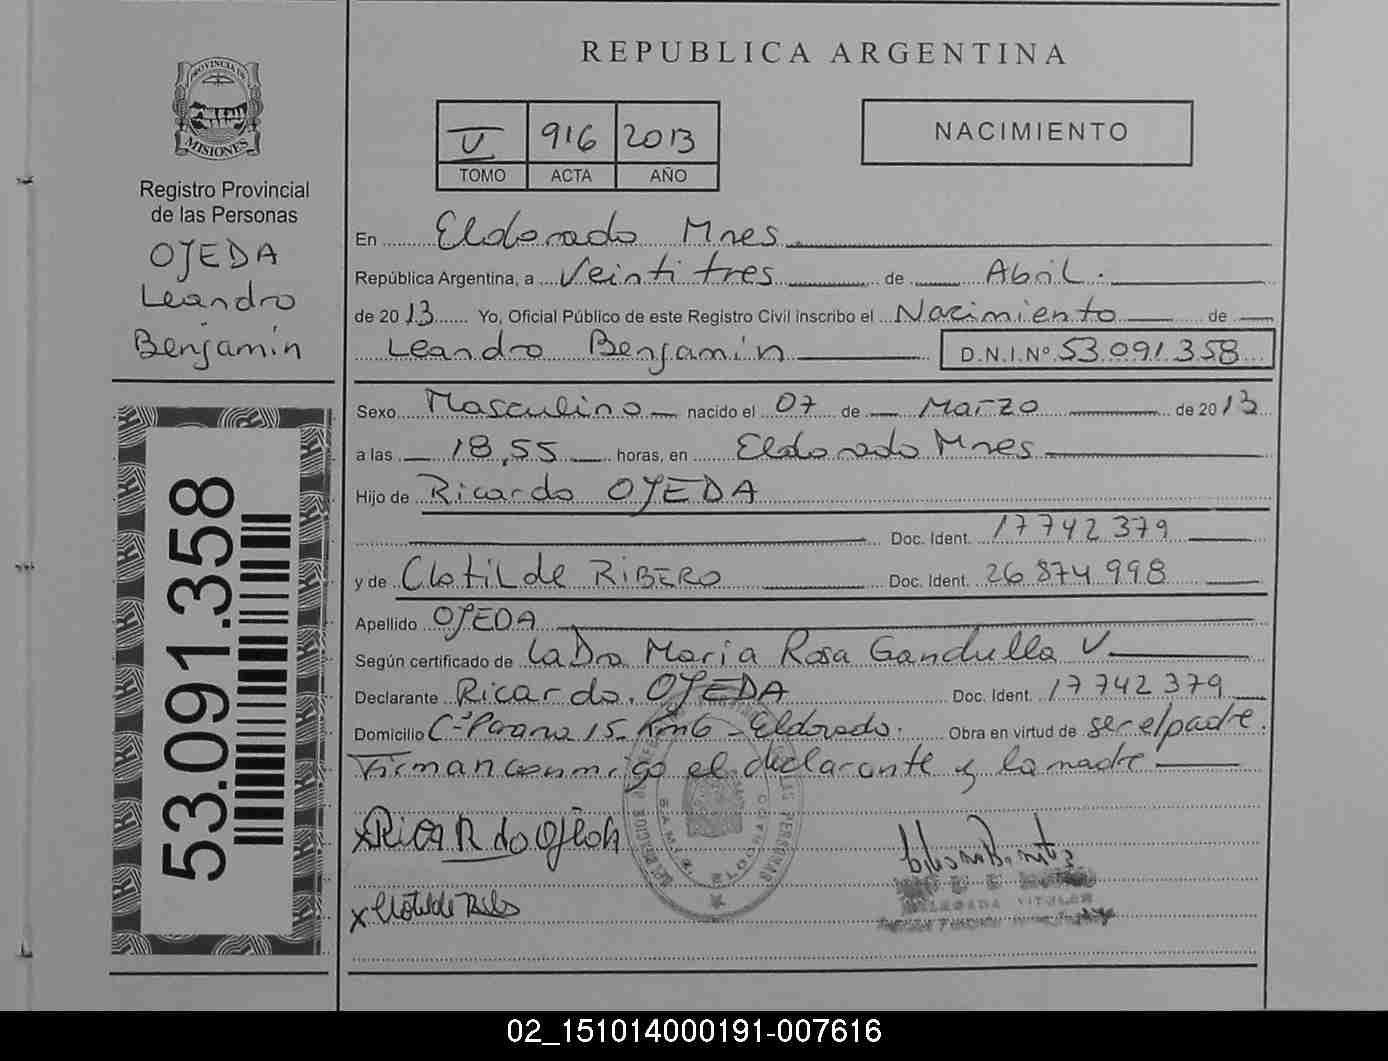 PROVINCIA DE
MISIONES
Registro Provincial
de las Personas
OJEDA
Leandro
Benjamín
53.091.358
REPUBLICA ARGENTINA
V 916 2013
TOMO ACTA AÑO
NACIMIENTO
En Eldorado Mnes
República Argentina, a Veintitres de Abril.
de 2013 Yo, Oficial Público de este Registro Civil inscribo el Nacimiento de
Leandro Benjamín D.N.I.Nº 53.091.358
Sexo Masculino nacido el 07 de Marzo de 2013
a las 18,55 horas, en Eldorado Mnes
Hijo de Ricardo OJEDA
Doc. Ident. 17742379
y de Clotilde RIBERO Doc. Ident. 26874998
Apellido OJEDA
Según certificado de La Dra Maria Rosa Gandulla V.
Declarante Ricardo. OJEDA Doc. Ident. 17742379
Domicilio Cº Parana 15 Km6 - Eldorado. Obra en virtud de ser el padre.
Firman conmigo el declarante y la madre
x Ricardo Ojeda
x Clotilde
DELEGADA TITULAR
02_151014000191-007616